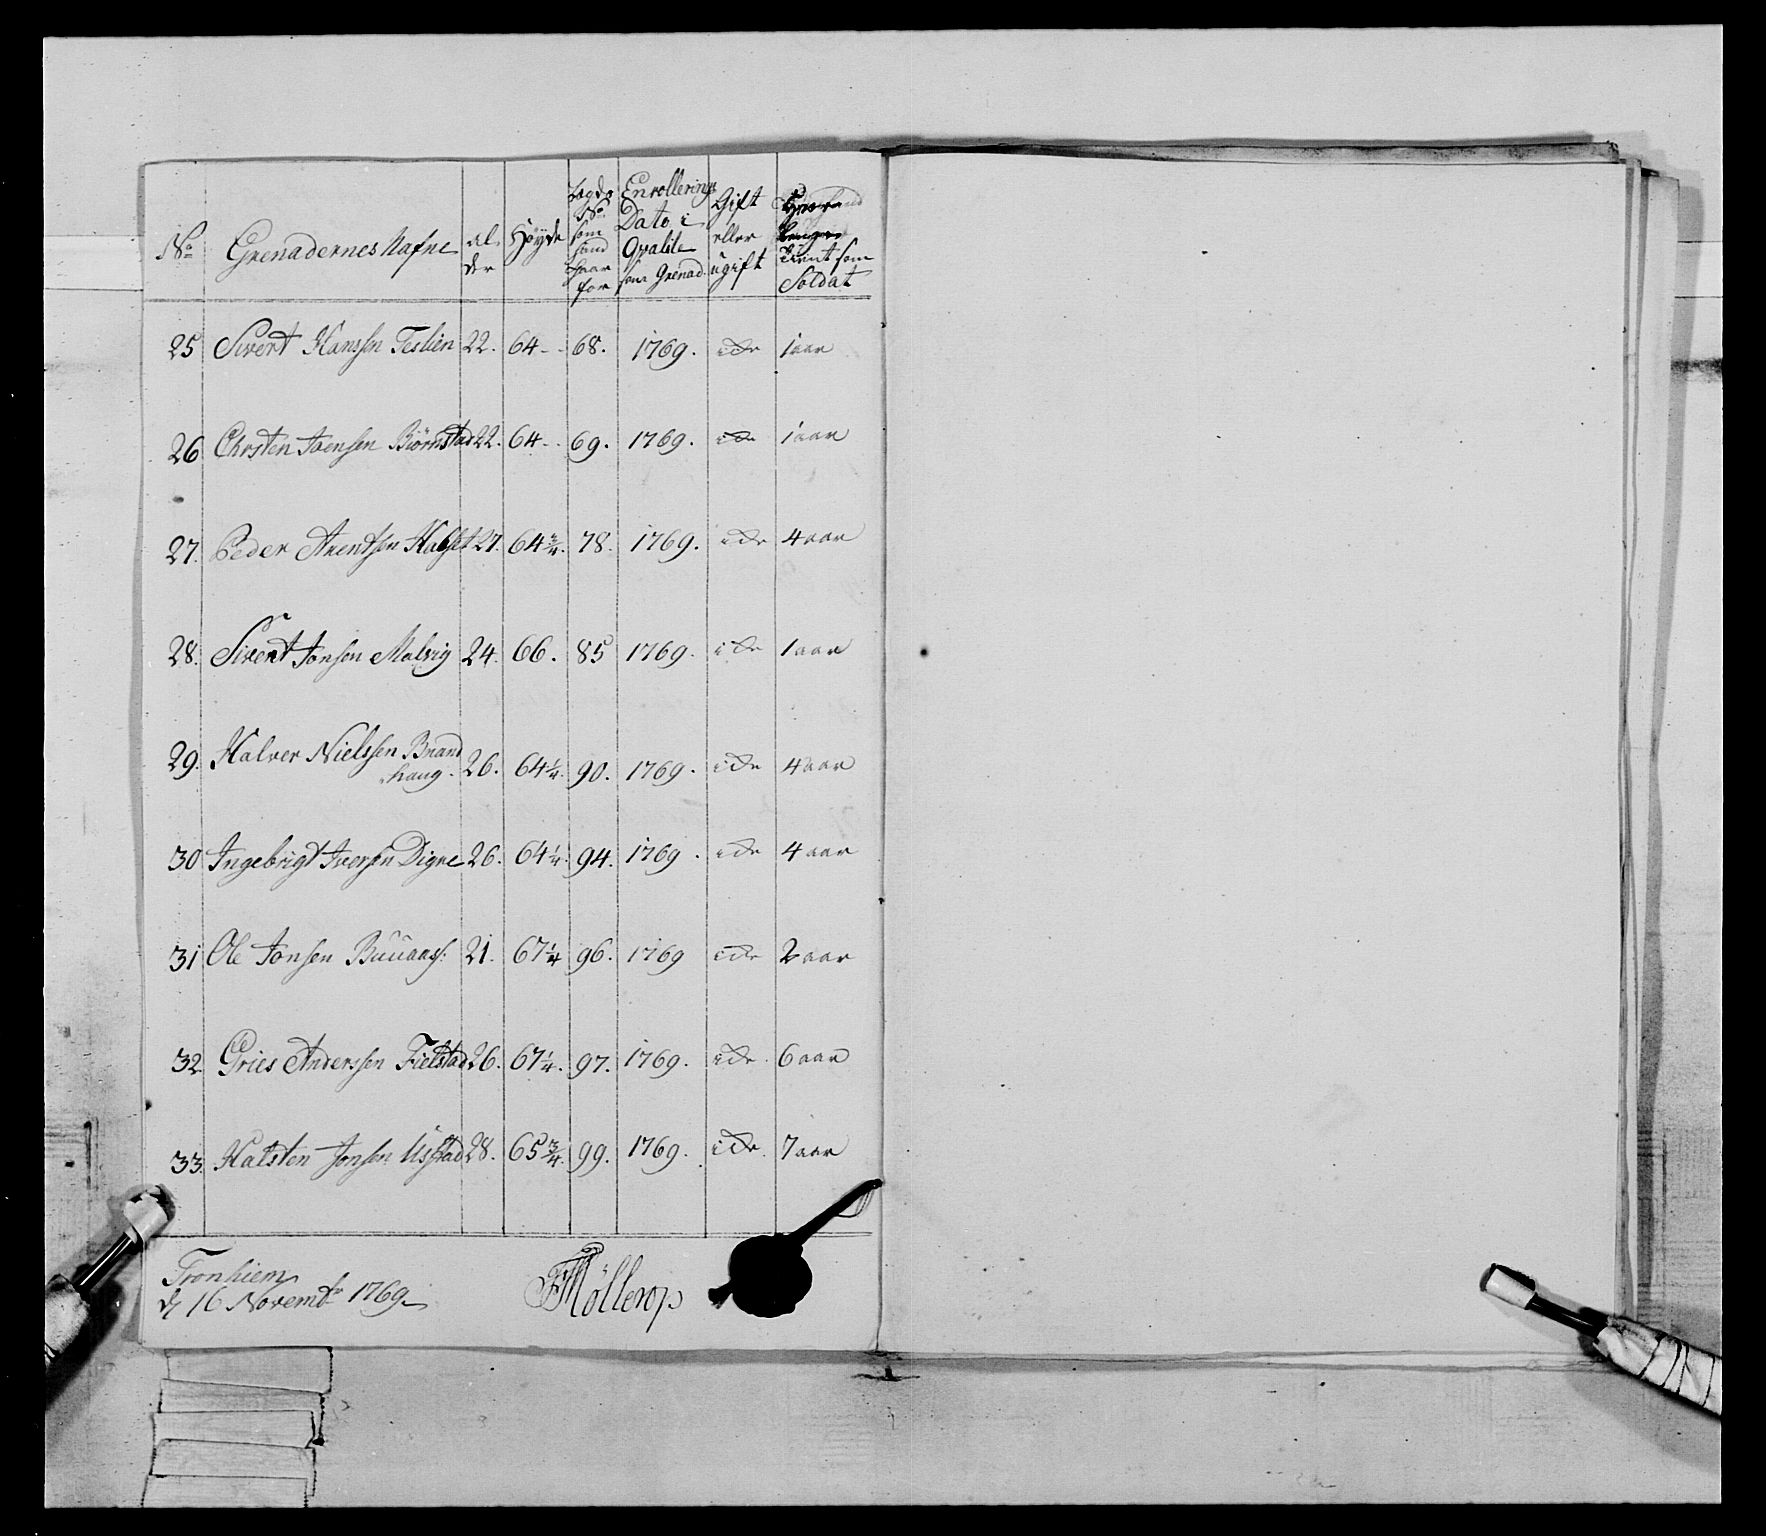 No Grenadernes Nafne al der Høyde Lægds No som hand staar for Enrollerings Dato i Qvalite som Grenad. Gift eller ugift tient som Soldat
25 Sivert Hanssen Teslien 22. 64 - - 68. 1769. ide 1 aar
26 Chrsten Joensen Biörnstad 22. 64 - - 69. 1769. ide 1 aar
27. Peder Arentsen Halset 27. 64 3/4. 78. 1769. ide 4 aar
28. Sivert Jonsen Malvig 24. 66. 85 1769. ide 1 aar
29. Halver Nielssen Brand
haug. 26. 64 1/4. 90. 1769. ide 4 aar
30 Ingebrigt Iversen Digre 26. 64 1/4. 94. 1769. ide 4 aar
31 Ole Jonsen 21. 67 1/4 96. 1769 ide 2 aar
32. Gries Anderssen Fielstad 26. 67 1/4. 97. 1769. ide. 6 aar
33. Halsten Jonsen Usstad 28. 65 3/4. 99. 1769. ide. 7 aar
Tronhiem
d 16 Novembr 1769
Möllerop